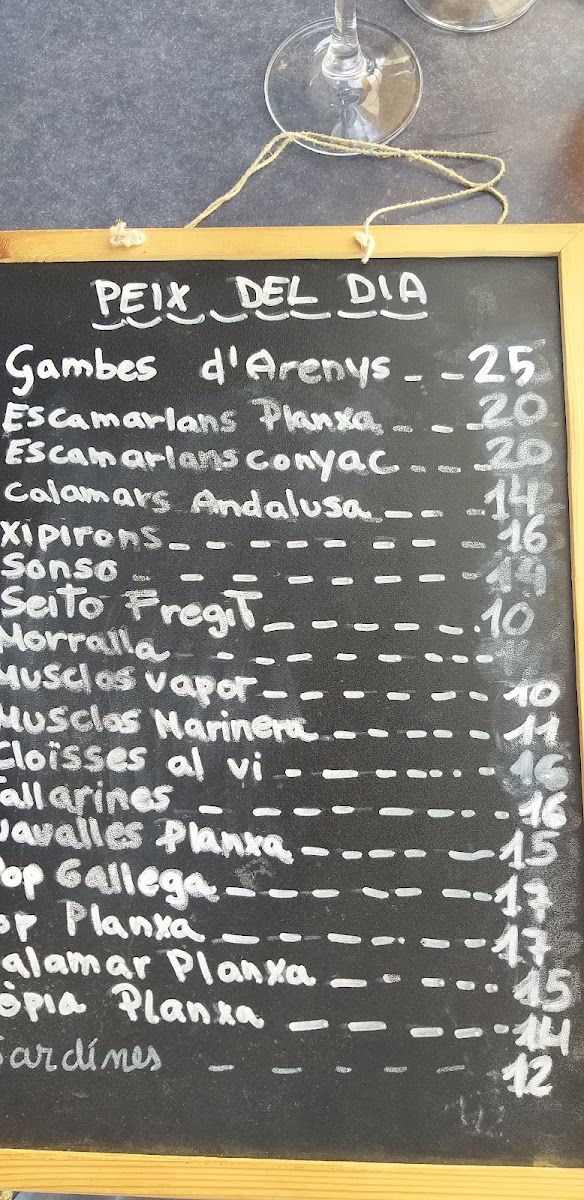 PEIX DEL DIA
Gambes d'Arenys - - 25
Escamarlans Planxa - - - 20
Escamarlans conyac - - - 20
Calamars Andalusa - - - 14
Xipirons - - - - - - - 16
Sonso - - - - - - - 14
Seito Fregit - - - - - 10
Morralla - - - - - - - -
Musclos vapor - - - - - - 10
Musclos Marinera - - - - - - 11
Cloïsses al vi - - - - - - 16
Tallarines - - - - - - - 16
Navalles Planxa - - - - - 15
Pop Gallega - - - - - - 17
Pop Planxa - - - - - - 17
Calamar Planxa - - - - - 15
Sèpia Planxa - - - - - 14
Sardines - - - - - 12